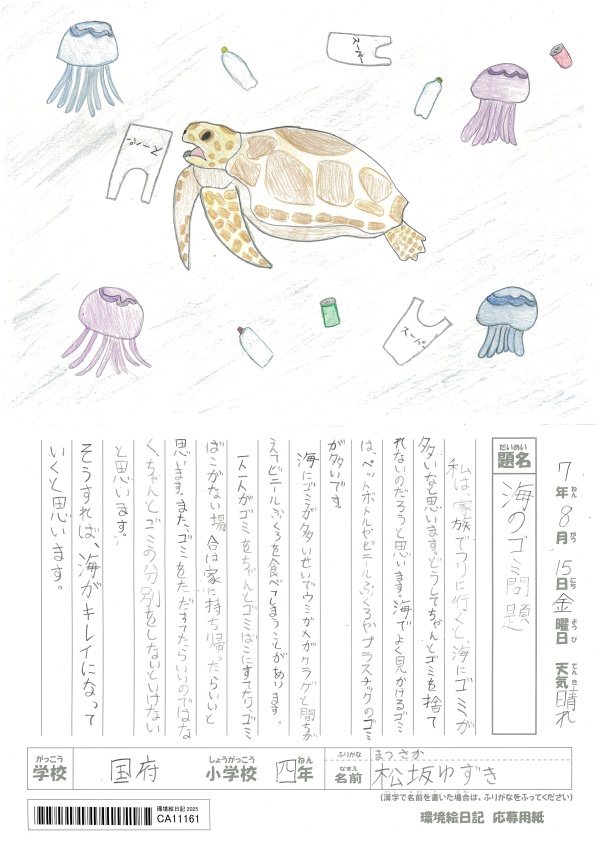 スーパー
スーパー
スーパー
7年8月15日金曜日 天気晴れ
ねん がつ にち ようび てんき
だいめい
題名
海のゴミ問題
私は、家族でつりに行くと、海にゴミが
多いなと思います。どうしてちゃんとゴミを捨て
れないのだろうと思います。海でよく見かけるゴミ
は、ペットボトルやビニールぶくろやプラスチックのゴミ
が多いです。
海にゴミが多いせいでウミガメがクラゲと間ちが
えてビニールぶくろを食べてしまうことがあります。
一人一人がゴミをちゃんとゴミばこにすてたり、ゴミ
ばこがない場合は家に持ち帰だらいいと
思います。また、ゴミをただすてたらいいのではな
く、ちゃんとゴミの分別をしないといけない
と思います。
そうすれば、海がキレイになって
いくと思います。
がっこう
学校
国府
しょうがっこう
小学校
四年
ねん
ふりがな
まつさか
なまえ
名前
松坂ゆずき
(漢字で名前を書いた場合は、ふりがなをふってください)
環境絵日記 2025
CA11161
環境絵日記 応募用紙